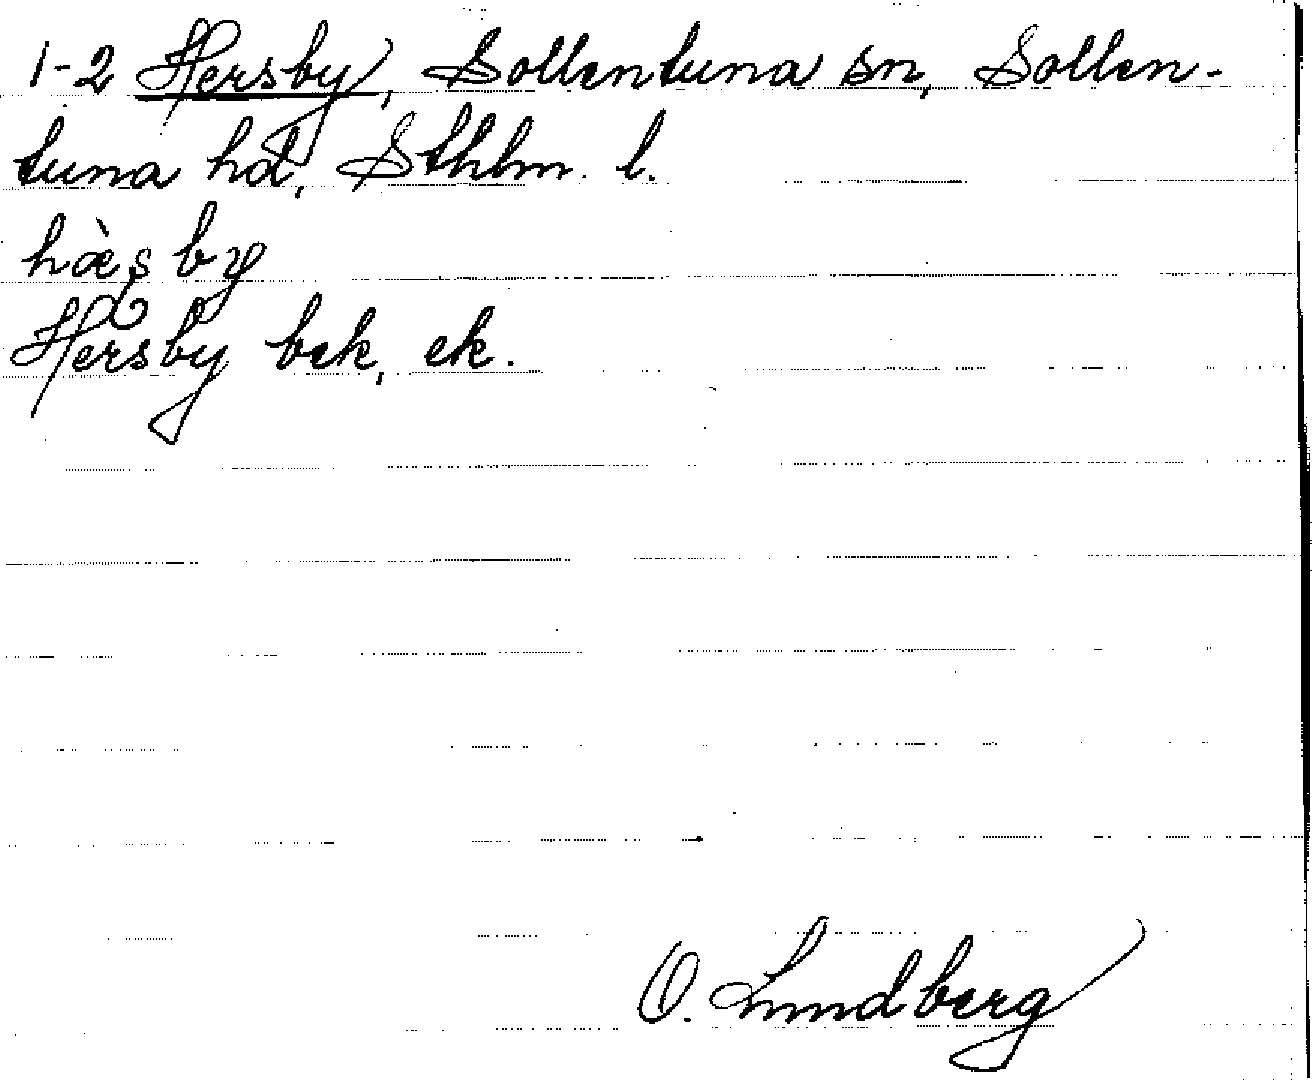 1-2 Hersby, Sollentuna sn, Sollen-
tuna hd, Sthlm. l.
hæ̀ṣby
Hersby bek, ek.
O. Lundberg